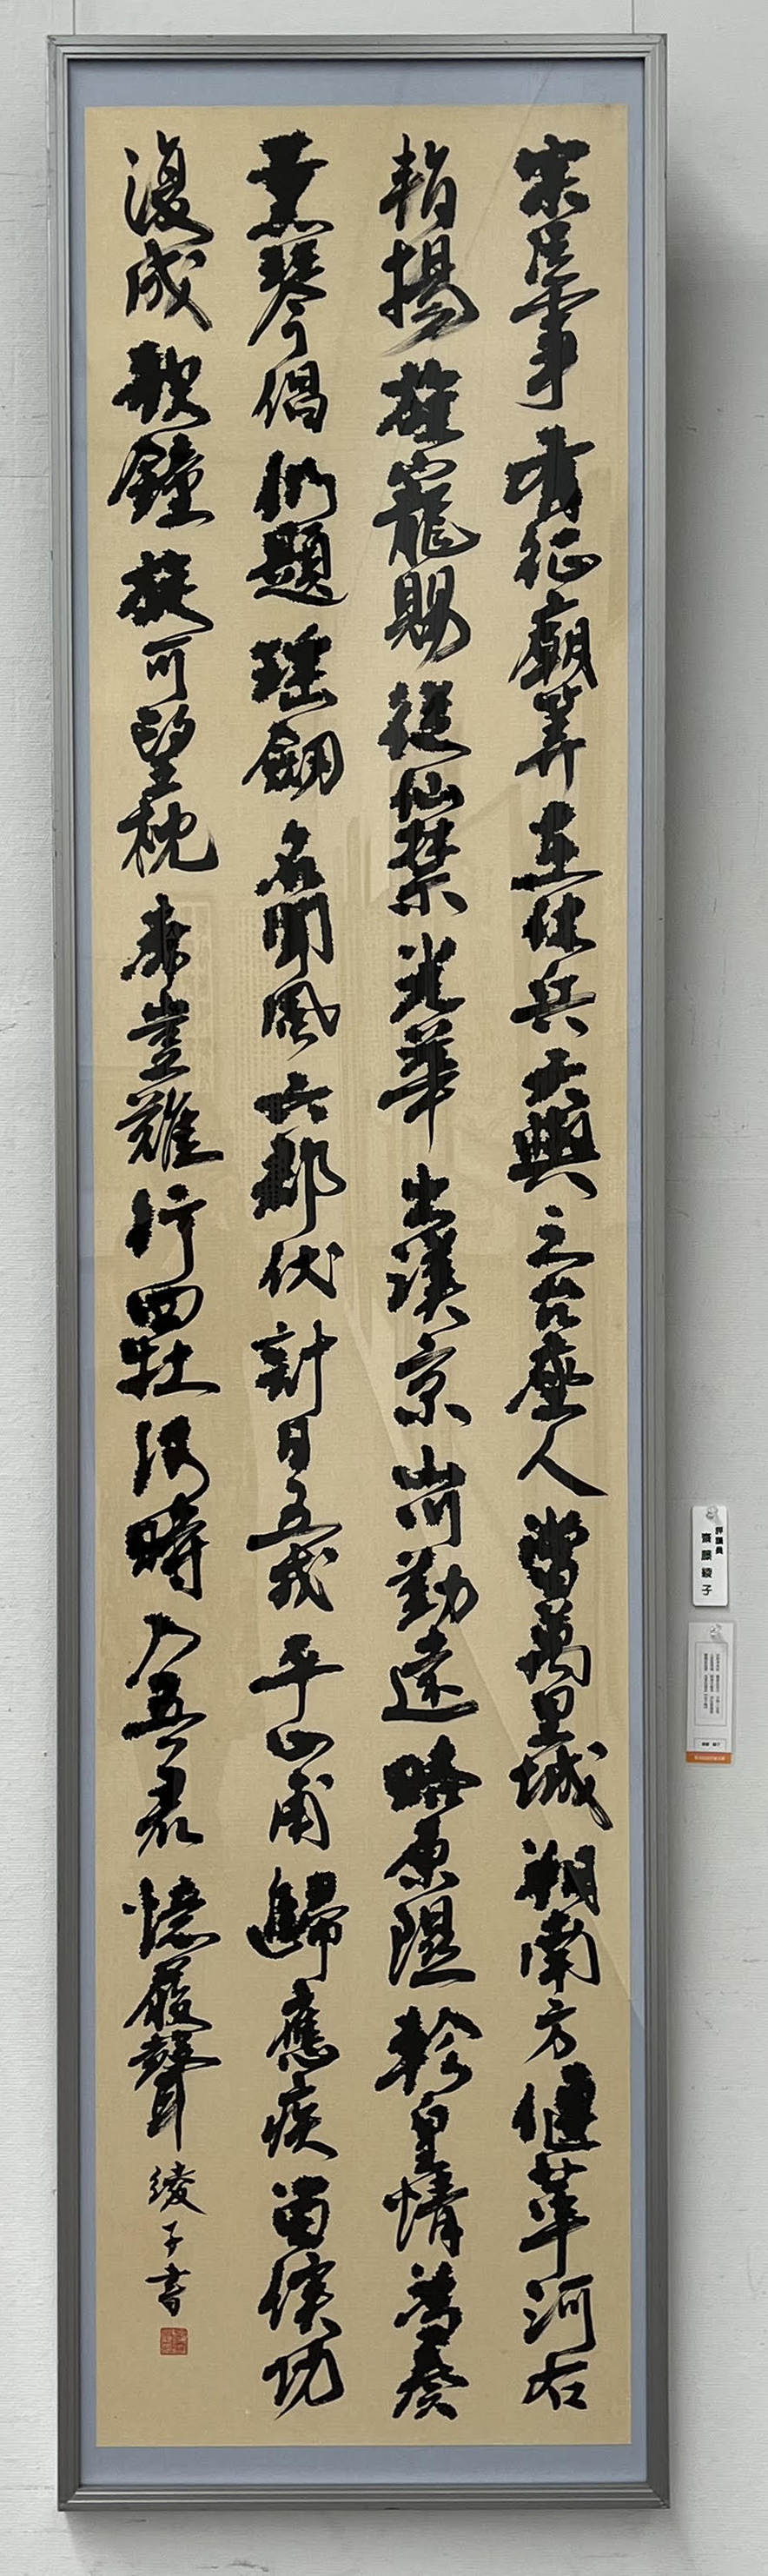 宗臣事有征廟算在休兵天與三台座人當萬里城朔南方偃革河右
暫揚旌寵賜從仙禁光華出漢京山川勤遠略原隰軫皇情為奏
薰琴倡仍題瑤劒名聞風六郡伏計日五戎平山甫歸應疾留侯功
復成歌鐘旋可望枕席豈難行四牡何時入吾君憶履聲 綾子書
評議員
齋藤綾子